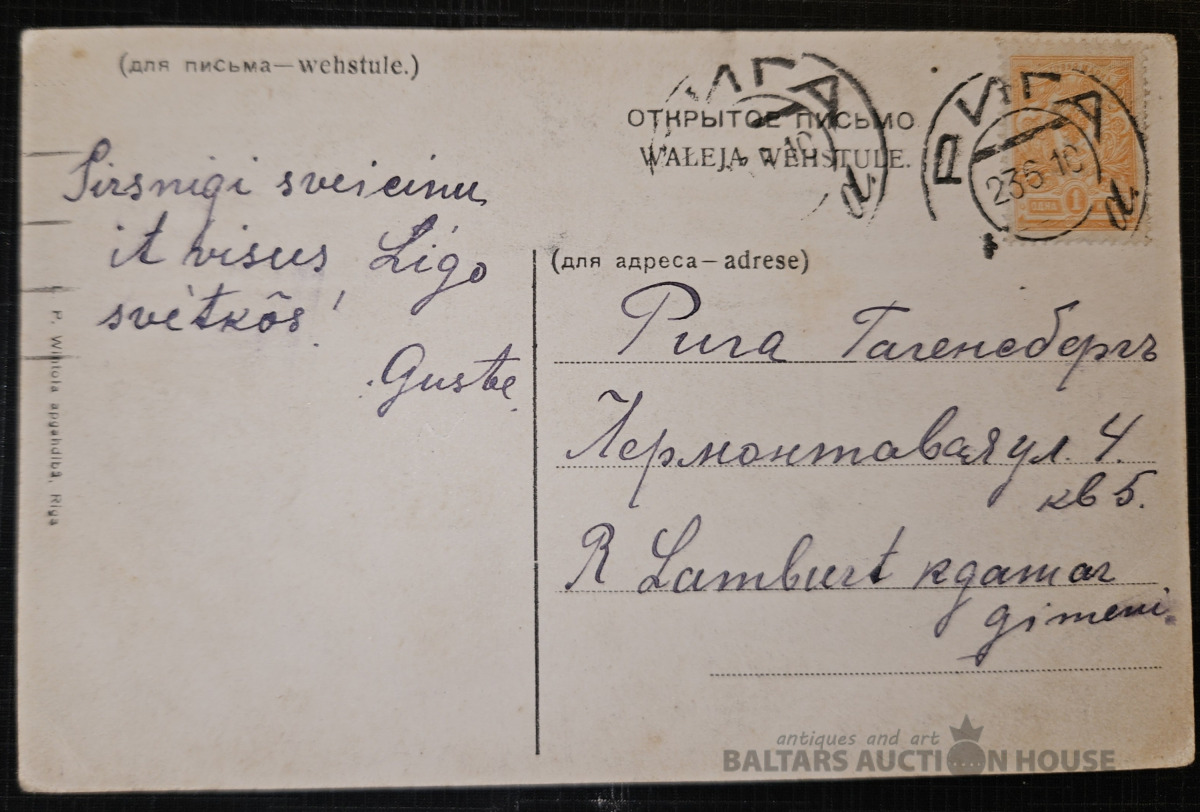 (для письма—wehstule.)
ОТКРЫТОЕ ПИСЬМО
WAŁEJA WEHSTULE.
РИГА
23 6 10
d.
РИГА
d.
1
Sirsnigi sveicinu
it visus Ligo
svētkōs!
Guste.
(для адреса—adrese)
Рига Гагенсбергъ
Лермонтавая ул. 4.
кв 5.
R Lamburt
gimeni.
P. Wihtola apgahdibā, Rigā
antiques and art
BALTARS AUCTION HOUSE